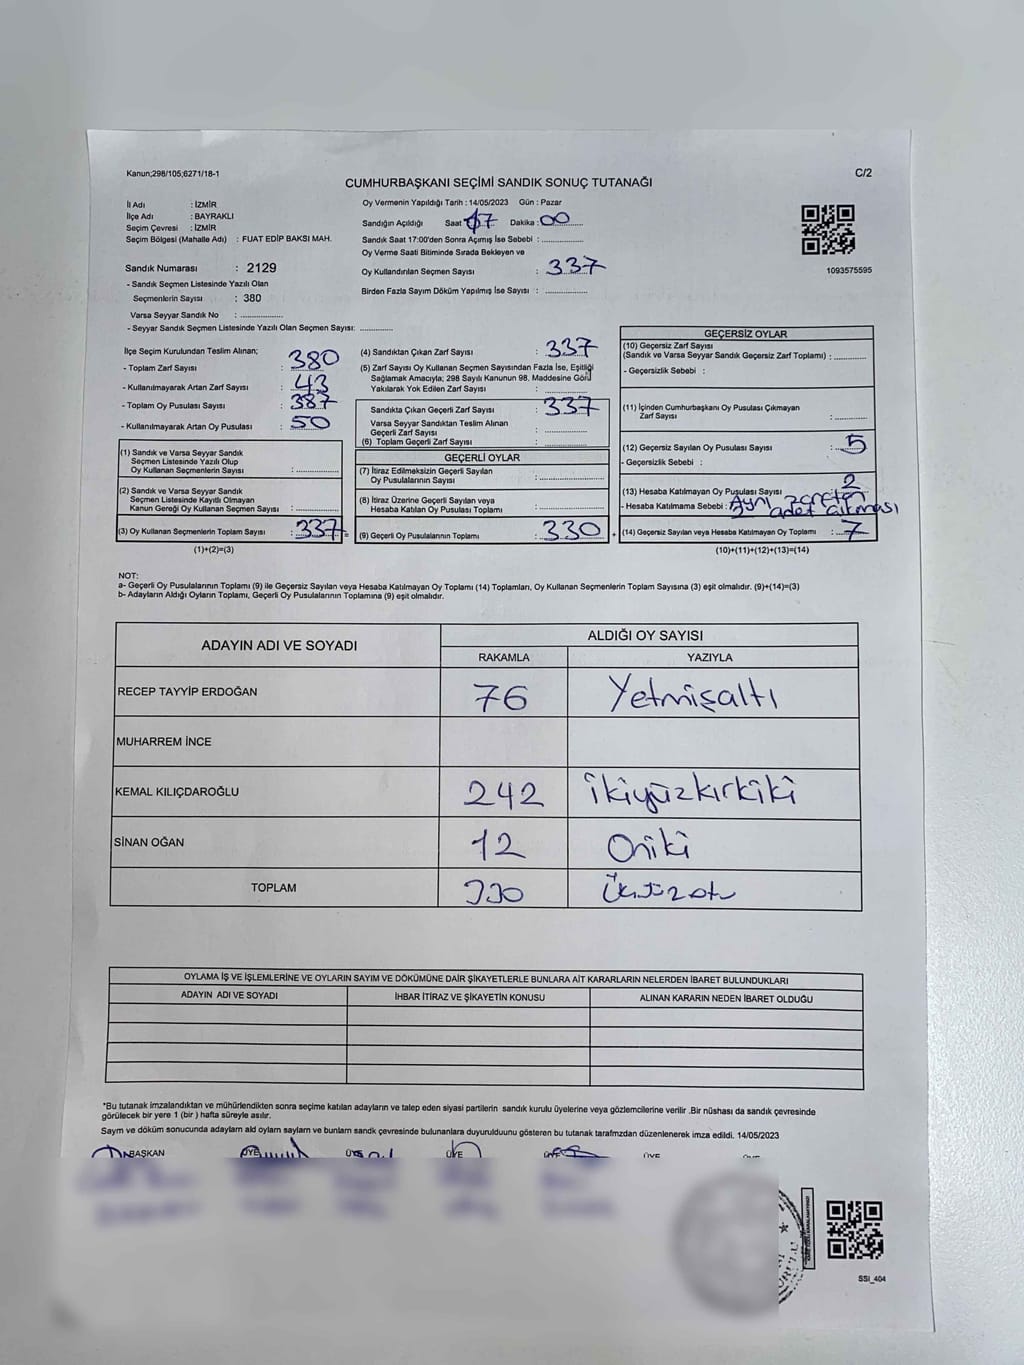 Kanun;298/105;6271/18-1
C/2
CUMHURBAŞKANI SEÇİMİ SANDIK SONUÇ TUTANAĞI
İl Adı : İZMİR
İlçe Adı : BAYRAKLI
Seçim Çevresi : İZMİR
Seçim Bölgesi (Mahalle Adı) : FUAT EDİP BAKSI MAH.
Sandık Numarası : 2129
- Sandık Seçmen Listesinde Yazılı Olan
Seçmenlerin Sayısı : 380
Varsa Seyyar Sandık No : ..............
- Seyyar Sandık Seçmen Listesinde Yazılı Olan Seçmen Sayısı: ............
Oy Vermenin Yapıldığı Tarih : 14/05/2023 Gün : Pazar
Sandığın Açıldığı Saat 17 Dakika : 00
Sandık Saat 17:00'den Sonra Açımış İse Sebebi : ..............
Oy Verme Saati Bitiminde Sırada Bekleyen ve
Oy Kullandırılan Seçmen Sayısı : 337
Birden Fazla Sayım Döküm Yapılmış İse Sayısı : ..............
1093575595
İlçe Seçim Kurulundan Teslim Alınan;
- Toplam Zarf Sayısı : 380
- Kullanılmayarak Artan Zarf Sayısı : 43
- Toplam Oy Pusulası Sayısı : 387
- Kullanılmayarak Artan Oy Pusulası : 50
(1) Sandık ve Varsa Seyyar Sandık
Seçmen Listesinde Yazılı Olup
Oy Kullanan Seçmenlerin Sayısı : ..............
(2) Sandık ve Varsa Seyyar Sandık
Seçmen Listesinde Kayıtlı Olmayan
Kanun Gereği Oy Kullanan Seçmen Sayısı : ..............
(3) Oy Kullanan Seçmenlerin Toplam Sayısı : 337 =
(1)+(2)=(3)
(4) Sandıktan Çıkan Zarf Sayısı : 337
(5) Zarf Sayısı Oy Kullanan Seçmen Sayısından Fazla İse, Eşitliği
Sağlamak Amacıyla; 298 Sayılı Kanunun 98. Maddesine Göre
Yakılarak Yok Edilen Zarf Sayısı : ..............
Sandıkta Çıkan Geçerli Zarf Sayısı : 337
Varsa Seyyar Sandıktan Teslim Alınan
Geçerli Zarf Sayısı : ..............
(6) Toplam Geçerli Zarf Sayısı : ..............
GEÇERLİ OYLAR
(7) İtiraz Edilmeksizin Geçerli Sayılan
Oy Pusulalarının Sayısı : ..............
(8) İtiraz Üzerine Geçerli Sayılan veya
Hesaba Katılan Oy Pusulası Toplamı : ..............
(9) Geçerli Oy Pusulalarının Toplamı : 330 +
GEÇERSİZ OYLAR
(10) Geçersiz Zarf Sayısı
(Sandık ve Varsa Seyyar Sandık Geçersiz Zarf Toplamı) : ............
- Geçersizlik Sebebi :
(11) İçinden Cumhurbaşkanı Oy Pusulası Çıkmayan
Zarf Sayısı : ............
(12) Geçersiz Sayılan Oy Pusulası Sayısı : 5
- Geçersizlik Sebebi :
(13) Hesaba Katılmayan Oy Pusulası Sayısı 2
- Hesaba Katılmama Sebebi : Aynı zarftan 2 adet çıkması
(14) Geçersiz Sayılan veya Hesaba Katılmayan Oy Toplamı : 7
(10)+(11)+(12)+(13)=(14)
NOT:
a- Geçerli Oy Pusulalarının Toplamı (9) ile Geçersiz Sayılan veya Hesaba Katılmayan Oy Toplamı (14) Toplamları, Oy Kullanan Seçmenlerin Toplam Sayısına (3) eşit olmalıdır. (9)+(14)=(3)
b- Adayların Aldığı Oyların Toplamı, Geçerli Oy Pusulalarının Toplamına (9) eşit olmalıdır.
ADAYIN ADI VE SOYADI
ALDIĞI OY SAYISI
RAKAMLA YAZIYLA
RECEP TAYYİP ERDOĞAN 76 Yetmişaltı
MUHARREM İNCE
KEMAL KILIÇDAROĞLU 242 İkiyüzkırkiki
SİNAN OĞAN 12 Oniki
TOPLAM 330 Üçyüzotuz
OYLAMA İŞ VE İŞLEMLERİNE VE OYLARIN SAYIM VE DÖKÜMÜNE DAİR ŞİKAYETLERLE BUNLARA AİT KARARLARIN NELERDEN İBARET BULUNDUKLARI
ADAYIN ADI VE SOYADI İHBAR İTİRAZ VE ŞİKAYETİN KONUSU ALINAN KARARIN NEDEN İBARET OLDUĞU
*Bu tutanak imzalandıktan ve mühürlendikten sonra seçime katılan adayların ve talep eden siyasi partilerin sandık kurulu üyelerine veya gözlemcilerine verilir .Bir nüshası da sandık çevresinde
görülecek bir yere 1 (bir ) hafta süreyle asılır.
Sayım ve döküm sonucunda adayların ald oyların sayların ve bunların sandk çevresinde bulunanlara duyurulduunu gösteren bu tutanak tarafmzdan düzenlenerek imza edildi. 14/05/2023
BAŞKAN ÜYE ÜYE ÜYE ÜYE ÜYE
SSI_404